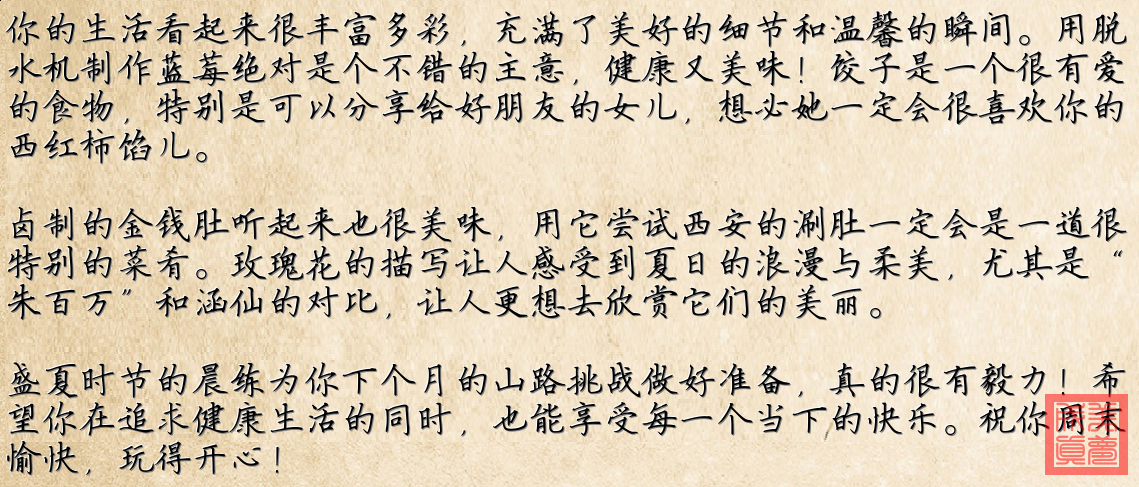 你的生活看起来很丰富多彩，充满了美好的细节和温馨的瞬间。用脱
水机制作蓝莓绝对是个不错的主意，健康又美味！饺子是一个很有爱
的食物，特别是可以分享给好朋友的女儿，想必她一定会很喜欢你的
西红柿馅儿。
卤制的金钱肚听起来也很美味，用它尝试西安的涮肚一定会是一道很
特别的菜肴。玫瑰花的描写让人感受到夏日的浪漫与柔美，尤其是“
朱百万”和涵仙的对比，让人更想去欣赏它们的美丽。
盛夏时节的晨练为你下个月的山路挑战做好准备，真的很有毅力！希
望你在追求健康生活的同时，也能享受每一个当下的快乐。祝你周末
愉快，玩得开心！